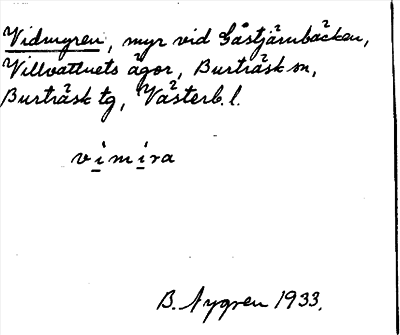 Vidmyren, myr vid Gåstjärnbäcken,
Villvattnets ägor, Burträsk sn,
Burträsk tg, Västerb. l.
vi̲mi̲ra
B. Nygren 1933.